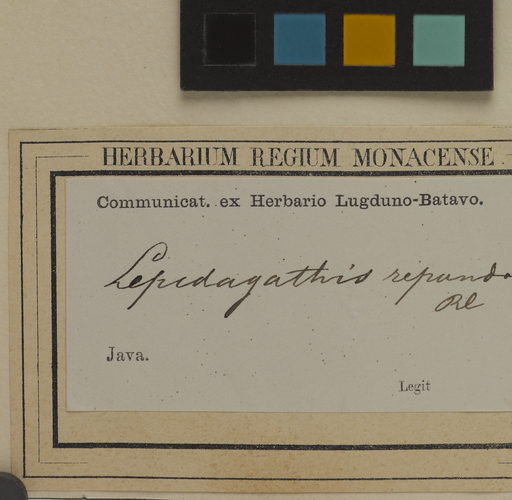 HERBARIUM REGIUM MONACENSE
Communicat. ex Herbario Lugduno-Batavo.
Lepidagathis repanda
Bl
Java.
Legit